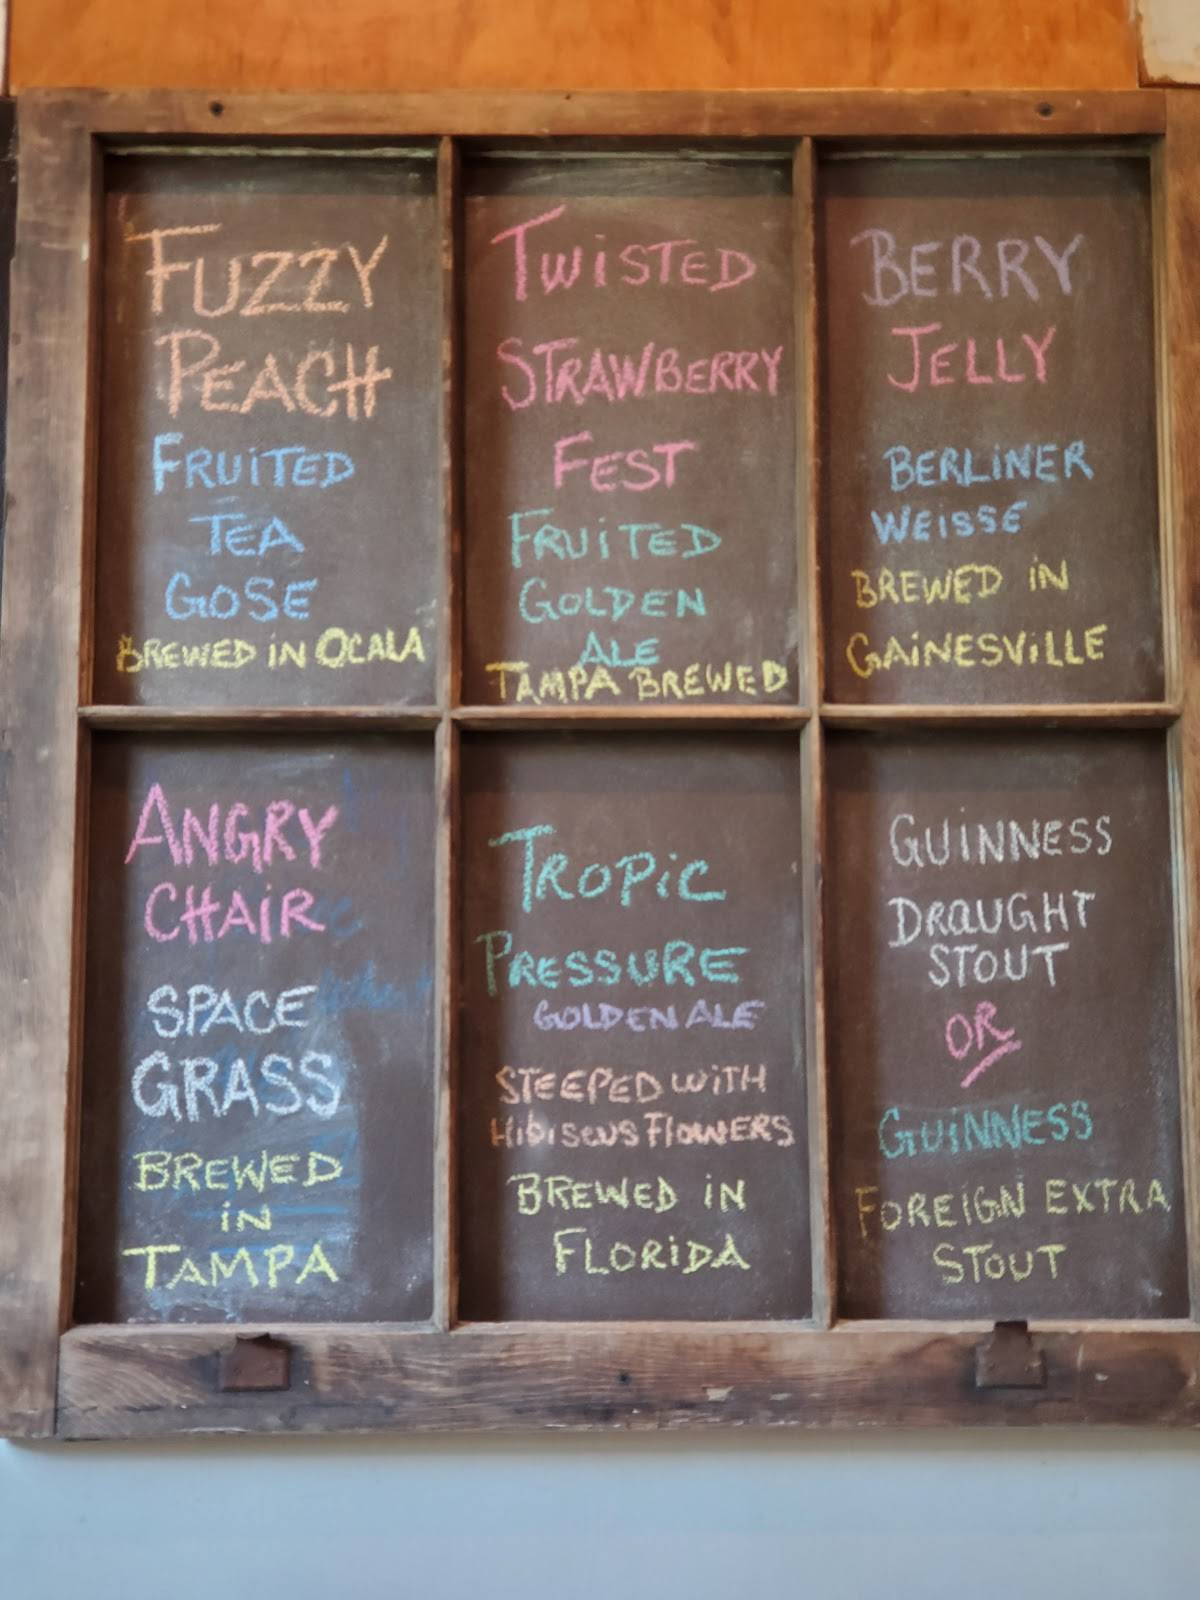 FUZZY
PEACH
FRUITED
TEA
GOSE
BREWED IN OCALA
TWISTED
STRAWBERRY
FEST
FRUITED
GOLDEN
ALE
TAMPA BREWED
BERRY
JELLY
BERLINER
WEISSE
BREWED IN
GAINESVILLE
ANGRY
CHAIR
SPACE
GRASS
BREWED
IN
TAMPA
TROPIC
PRESSURE
GOLDEN ALE
STEEPED WITH
HIBISCUS FLOWERS
BREWED IN
FLORIDA
GUINNESS
DRAUGHT
STOUT
OR
GUINNESS
FOREIGN EXTRA
STOUT